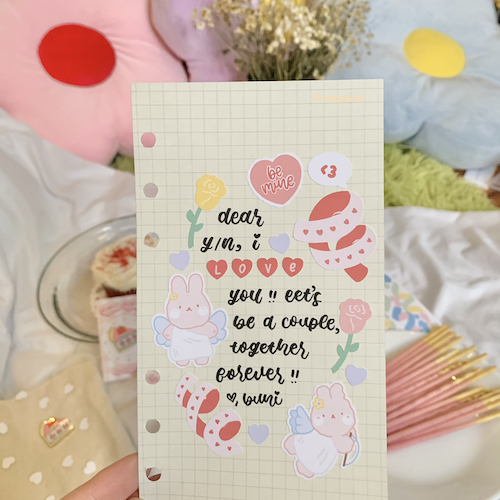 be
mine
<3
dear
y/n, i
LOVe
you !! eet's
be a couple,
together
forever !!
♡, buni